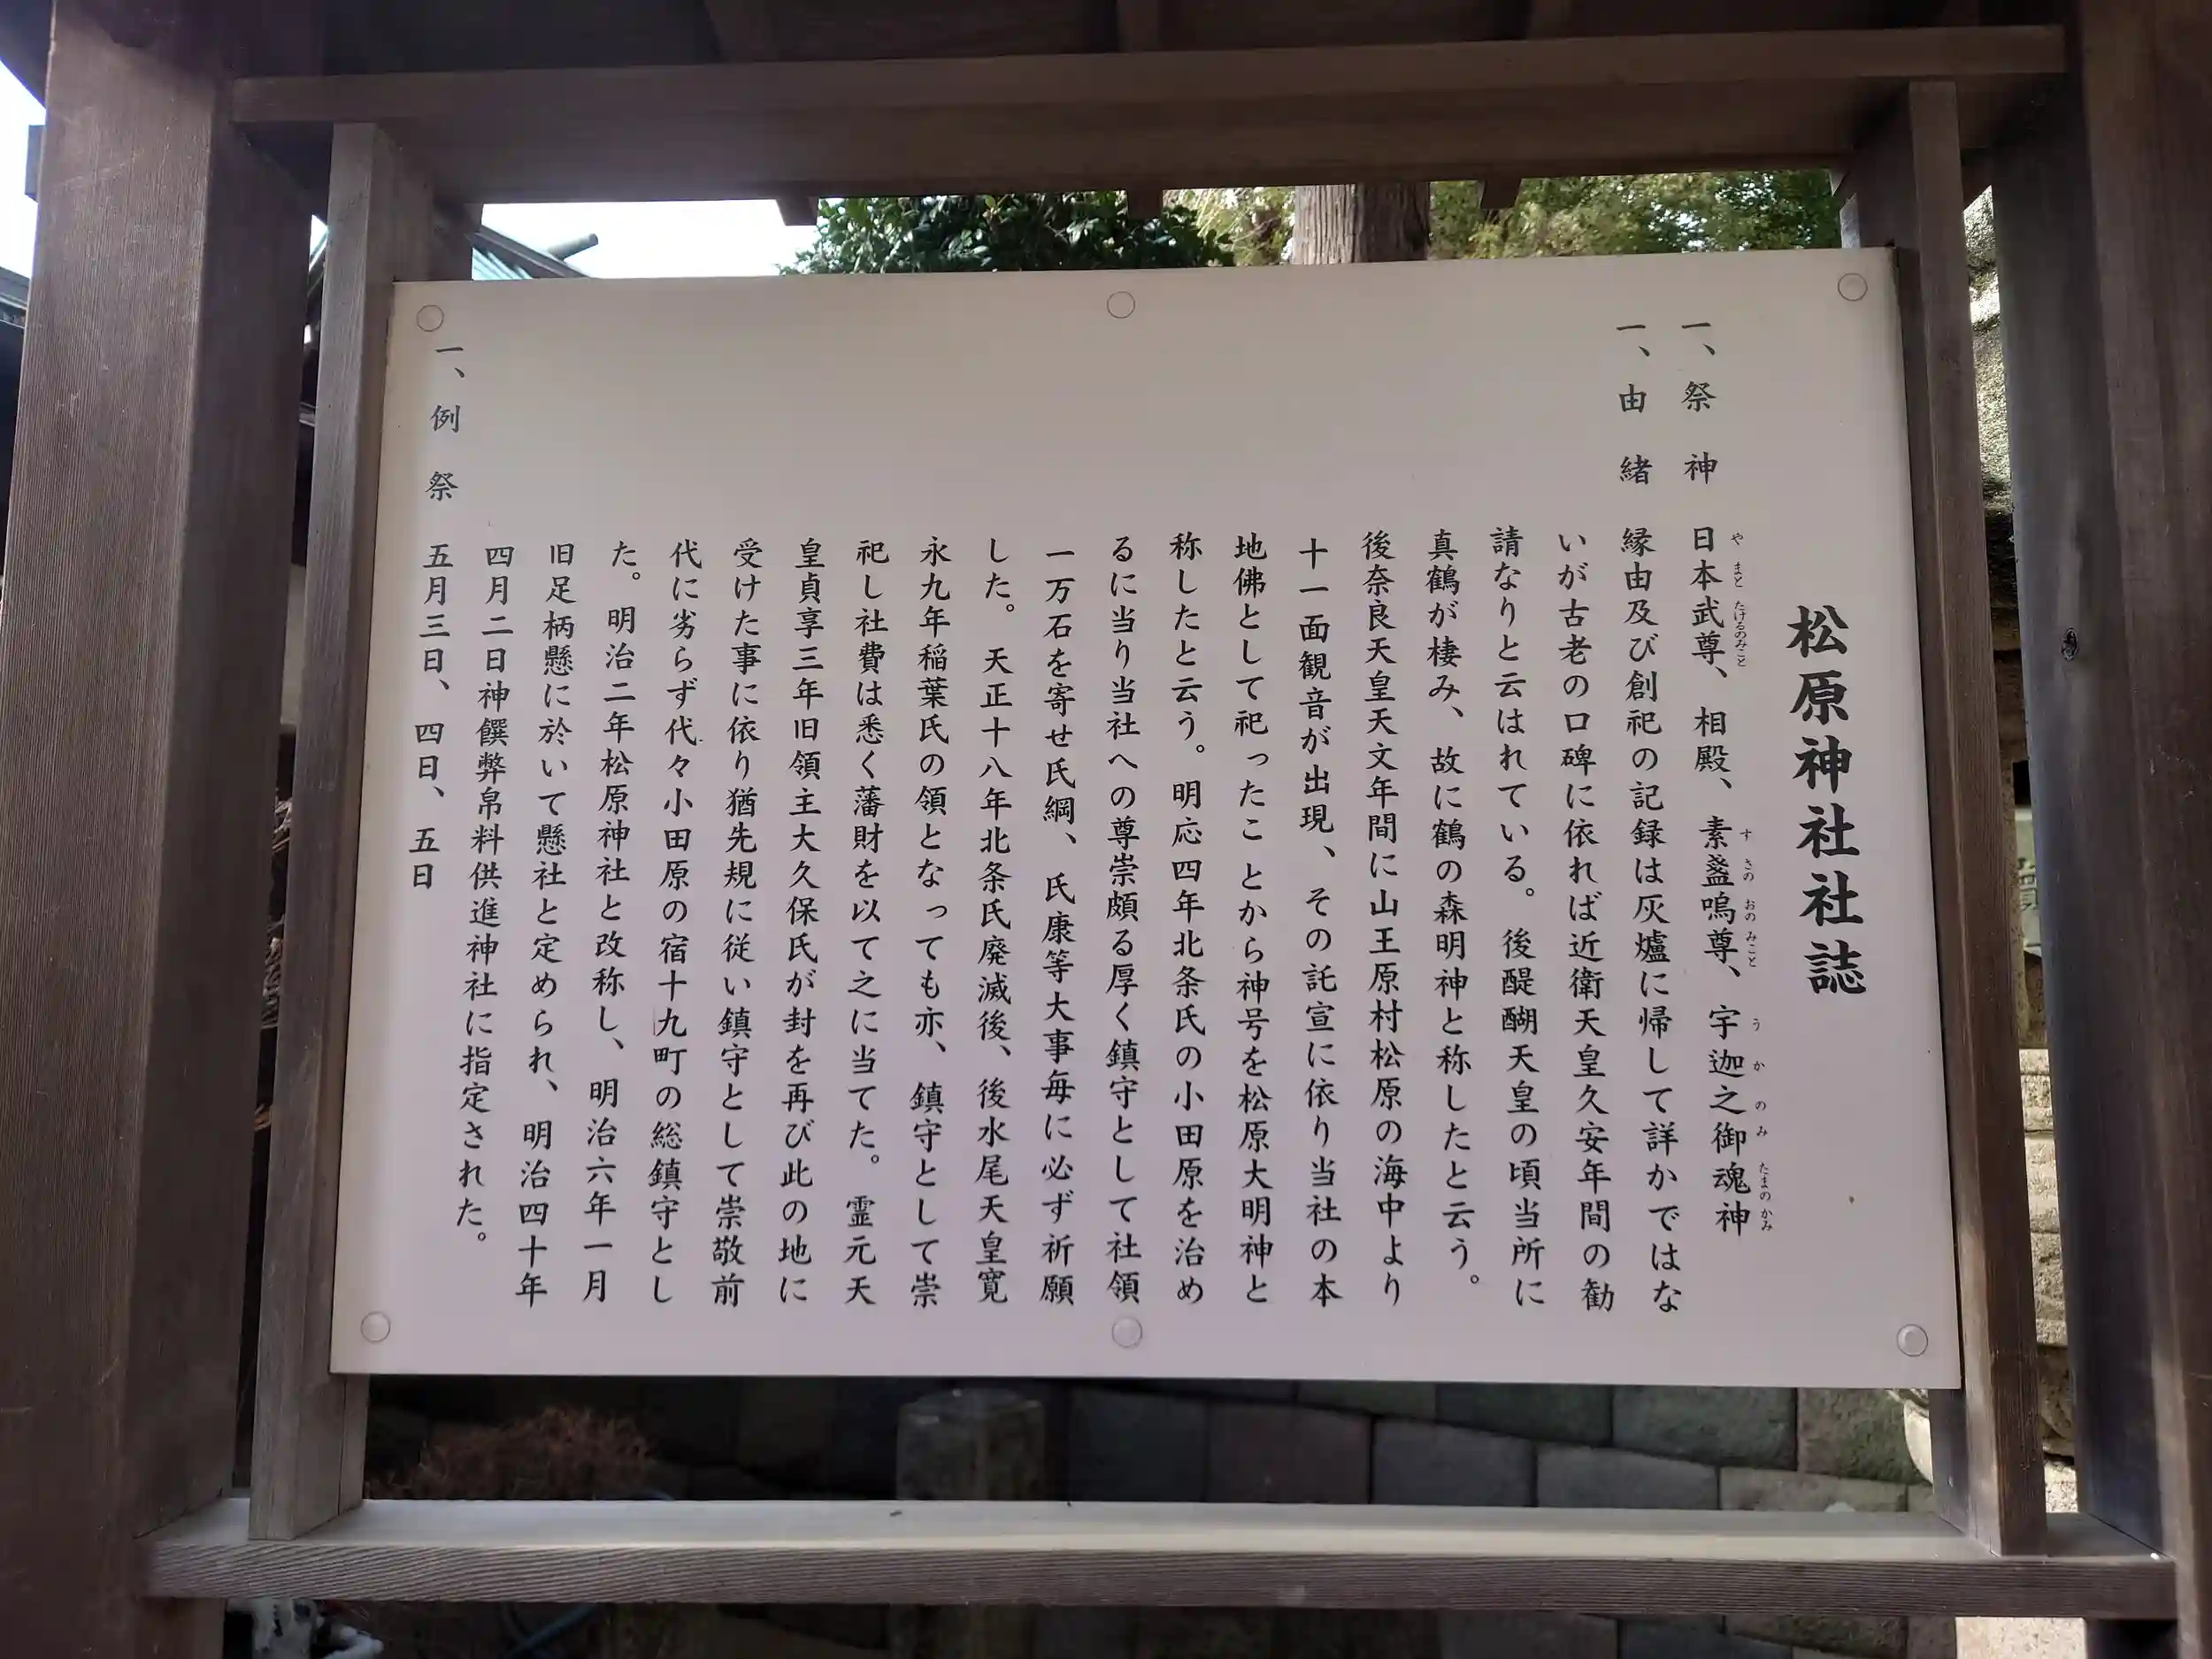 松原神社社誌
一、祭神　日本武尊、相殿、素盞嗚尊、宇迦之御魂神
やまとたけるのみこと　すさのおのみこと　うかのみたまのかみ
一、由緒　縁由及び創祀の記録は灰爐に帰して詳かではな
いが古老の口碑に依れば近衛天皇久安年間の勧
請なりと云はれている。後醍醐天皇の頃当所に
真鶴が棲み、故に鶴の森明神と称したと云う。
後奈良天皇天文年間に山王原村松原の海中より
十一面観音が出現、その託宣に依り当社の本
地佛として祀ったことから神号を松原大明神と
称したと云う。明応四年北条氏の小田原を治め
るに当り当社への尊崇頗る厚く鎮守として社領
一万石を寄せ氏綱、氏康等大事毎に必ず祈願
した。天正十八年北条氏廃滅後、後水尾天皇寛
永九年稲葉氏の領となっても亦、鎮守として崇
祀し社費は悉く藩財を以て之に当てた。霊元天
皇貞享三年旧領主大久保氏が封を再び此の地に
受けた事に依り猶先規に従い鎮守として崇敬前
代に劣らず代々小田原の宿十九町の総鎮守とし
た。明治二年松原神社と改称し、明治六年一月
旧足柄懸に於いて懸社と定められ、明治四十年
四月二日神饌弊帛料供進神社に指定された。
一、例祭　五月三日、四日、五日